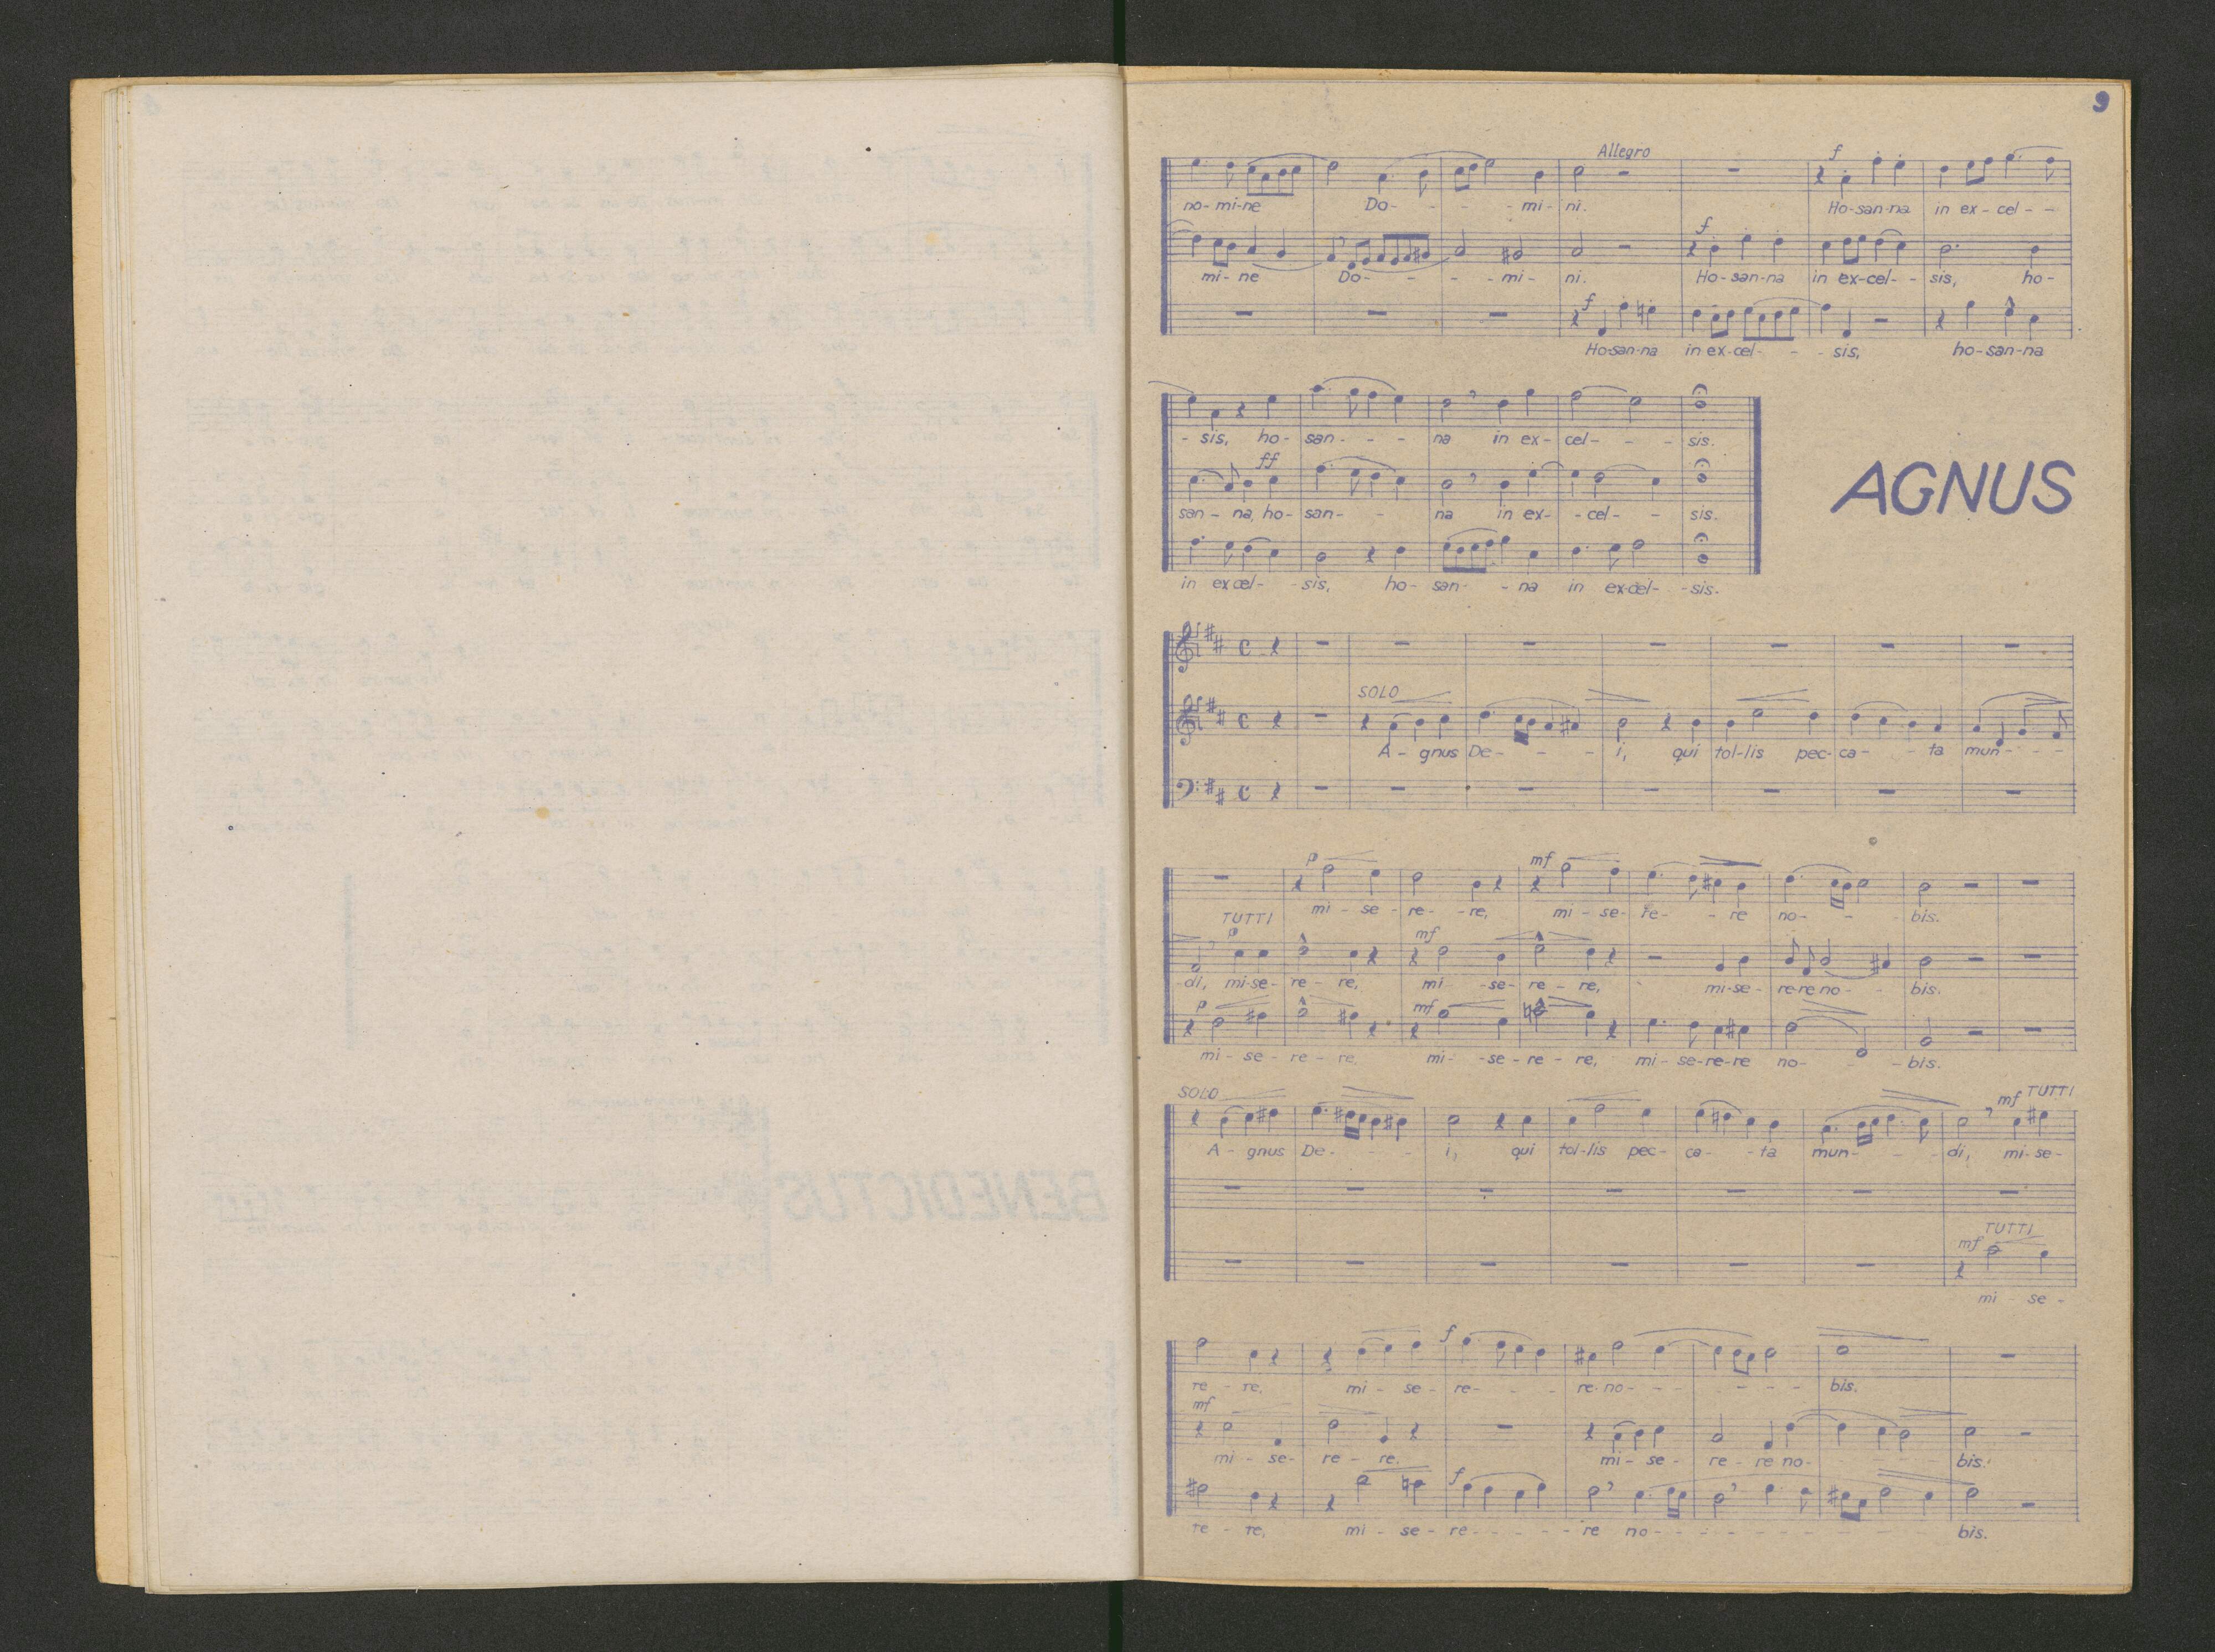 9
Allegro
f
no-mi-ne Do- - - - mi- ni. Ho-san-na in ex-cel- -
f
mi-ne Do- - - - mi- ni. Ho-san-na in ex-cel- - sis, ho-
f
Ho-san-na in ex-cel- - - sis, ho-san-na
- sis, ho- san- - - na in ex- cel- - - sis.
ff
san- na, ho- san- - na in ex- - cel- - sis.
in excel- - sis, ho- san- - na in ex-cel- - sis.
AGNUS
SOLO
A- gnus De- - - - i, qui tol-lis pec-ca- - ta mun- - -
p mf
mi - se - re- - re, mi - se- re- - re no- - - bis.
TUTTI
p mf
di, mi-se- re- re, mi -se- re - re, mi-se- re-re no- - bis.
p mf
mi- se- re- re, mi- -se-re- re, mi- se-re-re no- - - bis.
SOLO mf TUTTI
A- gnus De- - - - i, qui tol-lis pec- ca- - ta mun- - - di, mi-se-
TUTTI
mf
mi se -
f
re - re, mi - se - re- - - re no- - - - - - bis.
mf
mi - se- re - re. mi- se - re- re no- - - - bis.
f
re - re, mi - se- re- - - - re no- - - - - - - bis.
BENEDICTUS